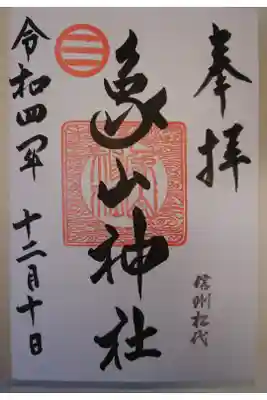 奉拝
信州松代
象山神社
令和四年 十二月十日